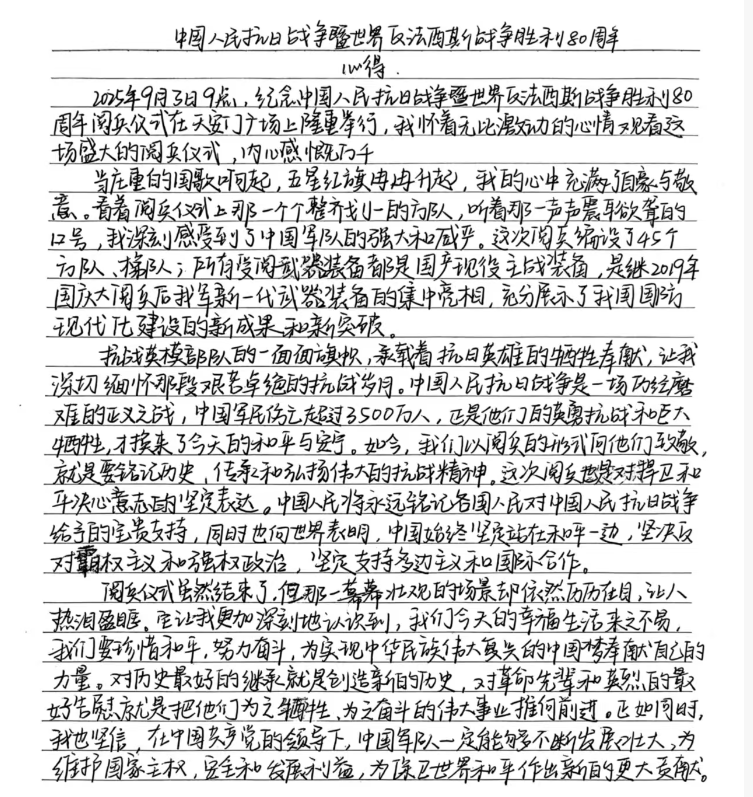 中国人民抗日战争暨世界反法西斯战争胜利80周年
心得.
2025年9月3日9点,纪念中国人民抗日战争暨世界反法西斯战争胜利80
周年阅兵仪式在天安门广场上隆重举行,我怀着无比激动的心情观看这
场盛大的阅兵仪式,内心感慨万千
当庄重的国歌响起,五星红旗冉冉升起,我的心中充满了自豪与敬
意。看着阅兵仪式上那一个个整齐划一的方队,听着那一声声震耳欲聋的
口号,我深刻感受到了中国军队的强大和威严。这次阅兵编设了45个
方队、梯队;所有受阅武器装备都是国产现役主战装备,是继2019年
国庆大阅兵后我军新一代武器装备的集中亮相,充分展示了我国国防
现代化建设的新成果和新突破。
抗战英模部队的一面面旗帜,承载着抗日英雄的牺牲奉献,让我
深切缅怀那段艰苦卓绝的抗战岁月。中国人民抗日战争是一场历经磨
难的正义之战,中国军民伤亡超过3500万人,正是他们的英勇抗战和巨大
牺牲,才换来了今天的和平与安宁。如今,我们以阅兵的形式向他们致敬,
就是要铭记历史,传承和弘扬伟大的抗战精神。这次阅兵也是对捍卫和
平决心意志的坚定表达。中国人民将永远铭记各国人民对中国人民抗日战争
给予的宝贵支持,同时也向世界表明,中国始终坚定站在和平一边,坚决反
对霸权主义和强权政治,坚定支持多边主义和国际合作。
阅兵仪式虽然结束了,但那一幕幕壮观的场景却依然历历在目,让人
热泪盈眶。它让我更加深刻地认识到,我们今天的幸福生活来之不易,
我们要珍惜和平,努力奋斗,为实现中华民族伟大复兴的中国梦奉献自己的
力量。对历史最好的继承就是创造新的历史,对革命先辈和英烈的最
好告慰就是把他们为之牺牲、为之奋斗的伟大事业推向前进。正如同时,
我也坚信,在中国共产党的领导下,中国军队一定能够不断发展壮大,为
维护国家主权,安全和发展利益,为保卫世界和平作出新的更大贡献。